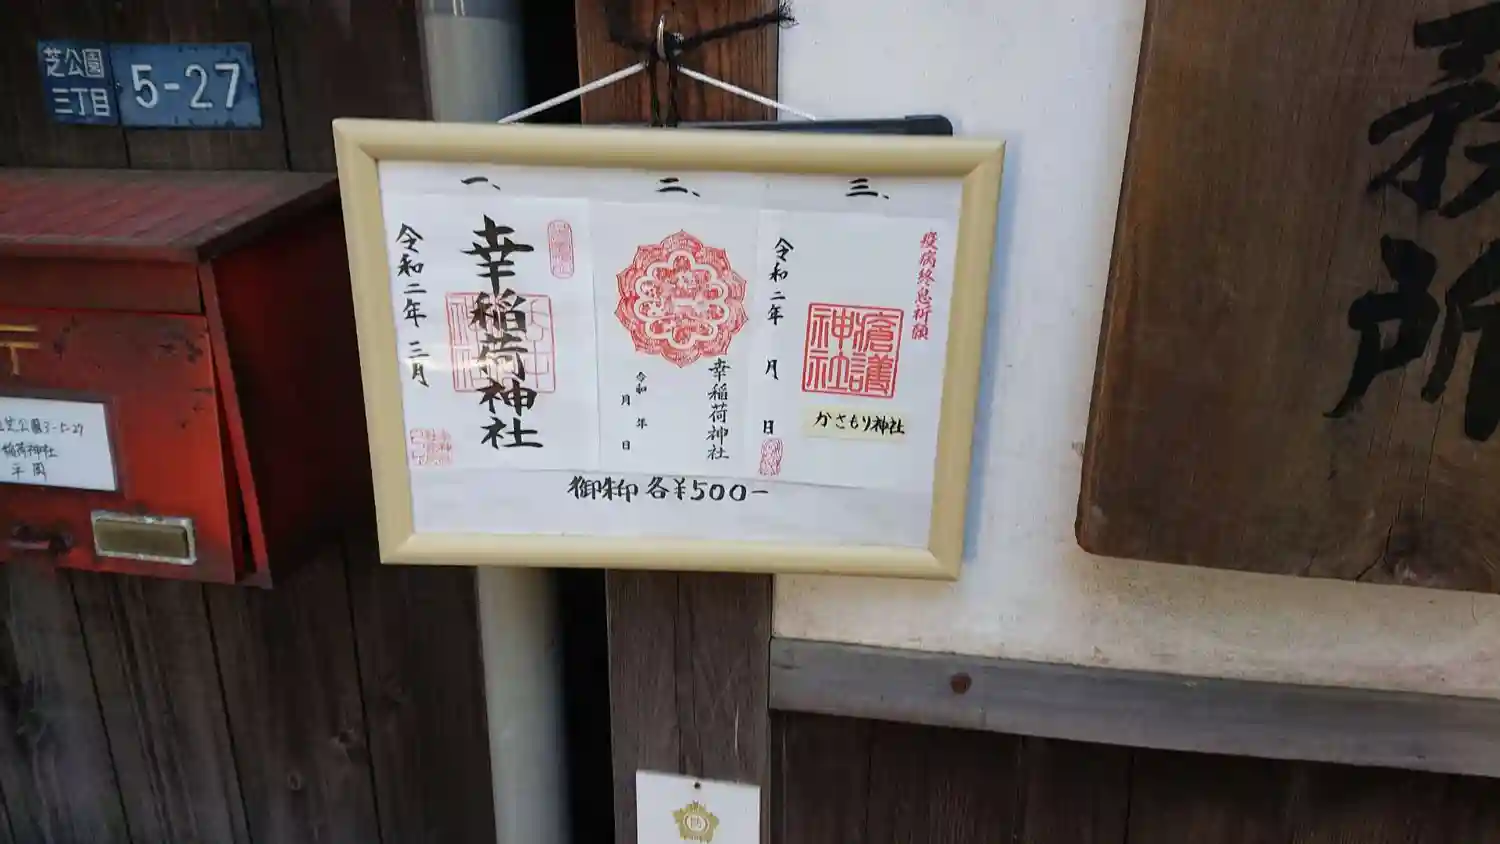 芝公園
三丁目
5-27
芝公園3-5-27
稲荷神社
一、
令和二年 三月
幸稲荷神社
二、
令和 年
月 日
幸稲荷神社
三、
疫病終息祈願
令和二年 月 日
瘡護
神社
かさもり神社
御朱印 各¥500-
務所